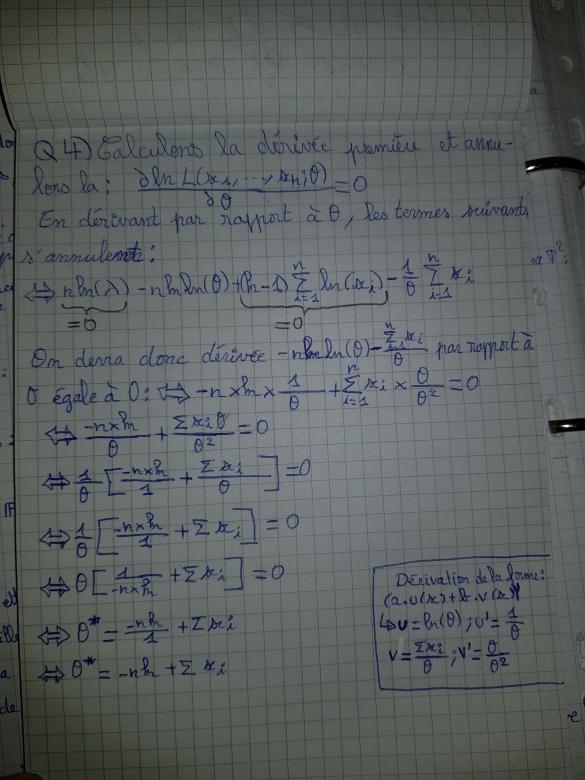 Q 4) Calculons la dérivée première et annu-
lons la : ∂ln L(x₁, ..., xₙ; θ) / ∂θ = 0
En dérivant par rapport à θ, les termes suivants
s'annulent :
⇔ n ln(λ) - nh ln(θ) + (h-1) Σⁿᵢ₌₁ ln(xᵢ) - 1/θ Σⁿᵢ₌₁ xᵢ
=0 =0
On devra donc dérivée -nh ln(θ) - Σⁿ xᵢ / θ par rapport à
θ égale à 0 : ⇔ -n × h × 1/θ + Σⁿᵢ₌₁ xᵢ × θ/θ² = 0
⇔ -n×h/θ + Σxᵢθ/θ² = 0
⇔ 1/θ [ -n×h/1 + Σxᵢ/θ ] = 0
⇔ 1/θ [ -n×h/1 + Σxᵢ ] = 0
⇔ θ [ 1/-n×h + Σxᵢ ] = 0
⇔ θ* = -nh/1 + Σxᵢ
⇔ θ* = -nh + Σxᵢ
Dérivation de la forme :
(a.u(x) + b.v(x))'
↳ u = ln(θ) ; u' = 1/θ
v = Σxᵢ/θ ; v' = θ/θ²